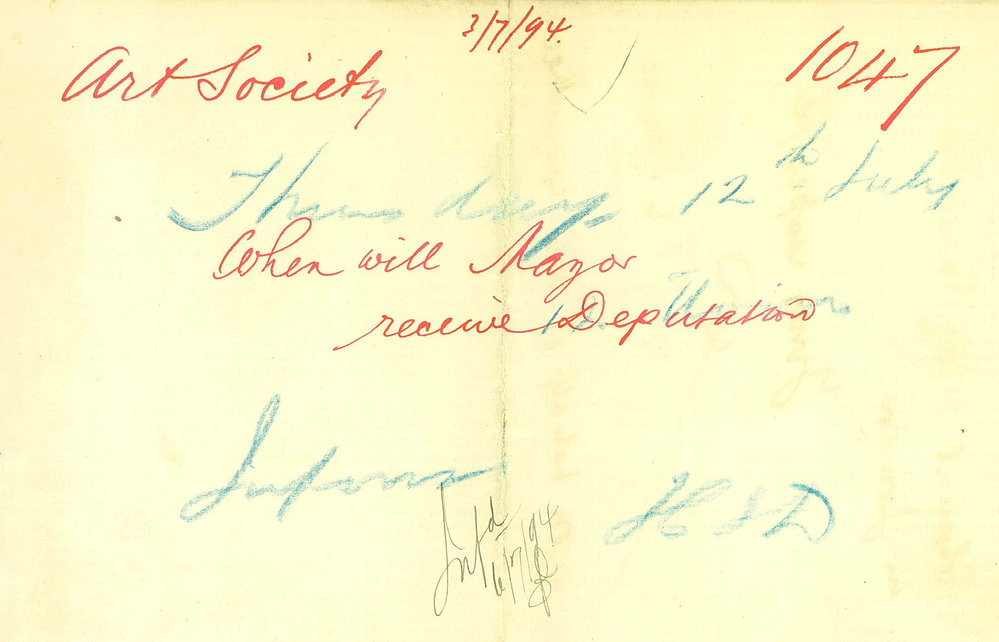 3/7/94.
Art Society
1047
Thursday 12th July
When will Mayor
receive Deputation
12 Noon
Inform
Infd
6/7/94